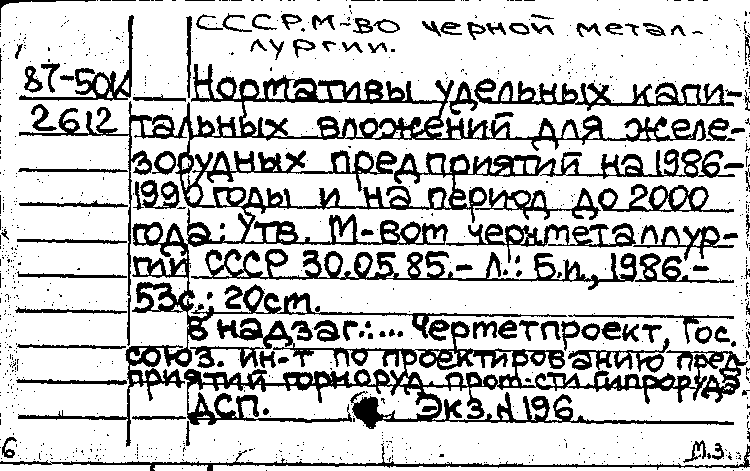 СССР. М-во черной метал-
лургии.
87-50К Нормативы удельных капи-
2612 тальных вложений для желе-
зорудных предприятий на 1986-
1990 годы и на период до 2000
года: Утв. М-вом черн. металлур-
гии СССР 30.05.85.- Л.: Б.и., 1986.-
53с.; 20см.
В надзаг.:... Черметпроект, Гос.
союз. ин-т по проектированию пред-
приятий горноруд. пром-сти Гипроруда.
ДСП. Экз. N 196.
6 М.З